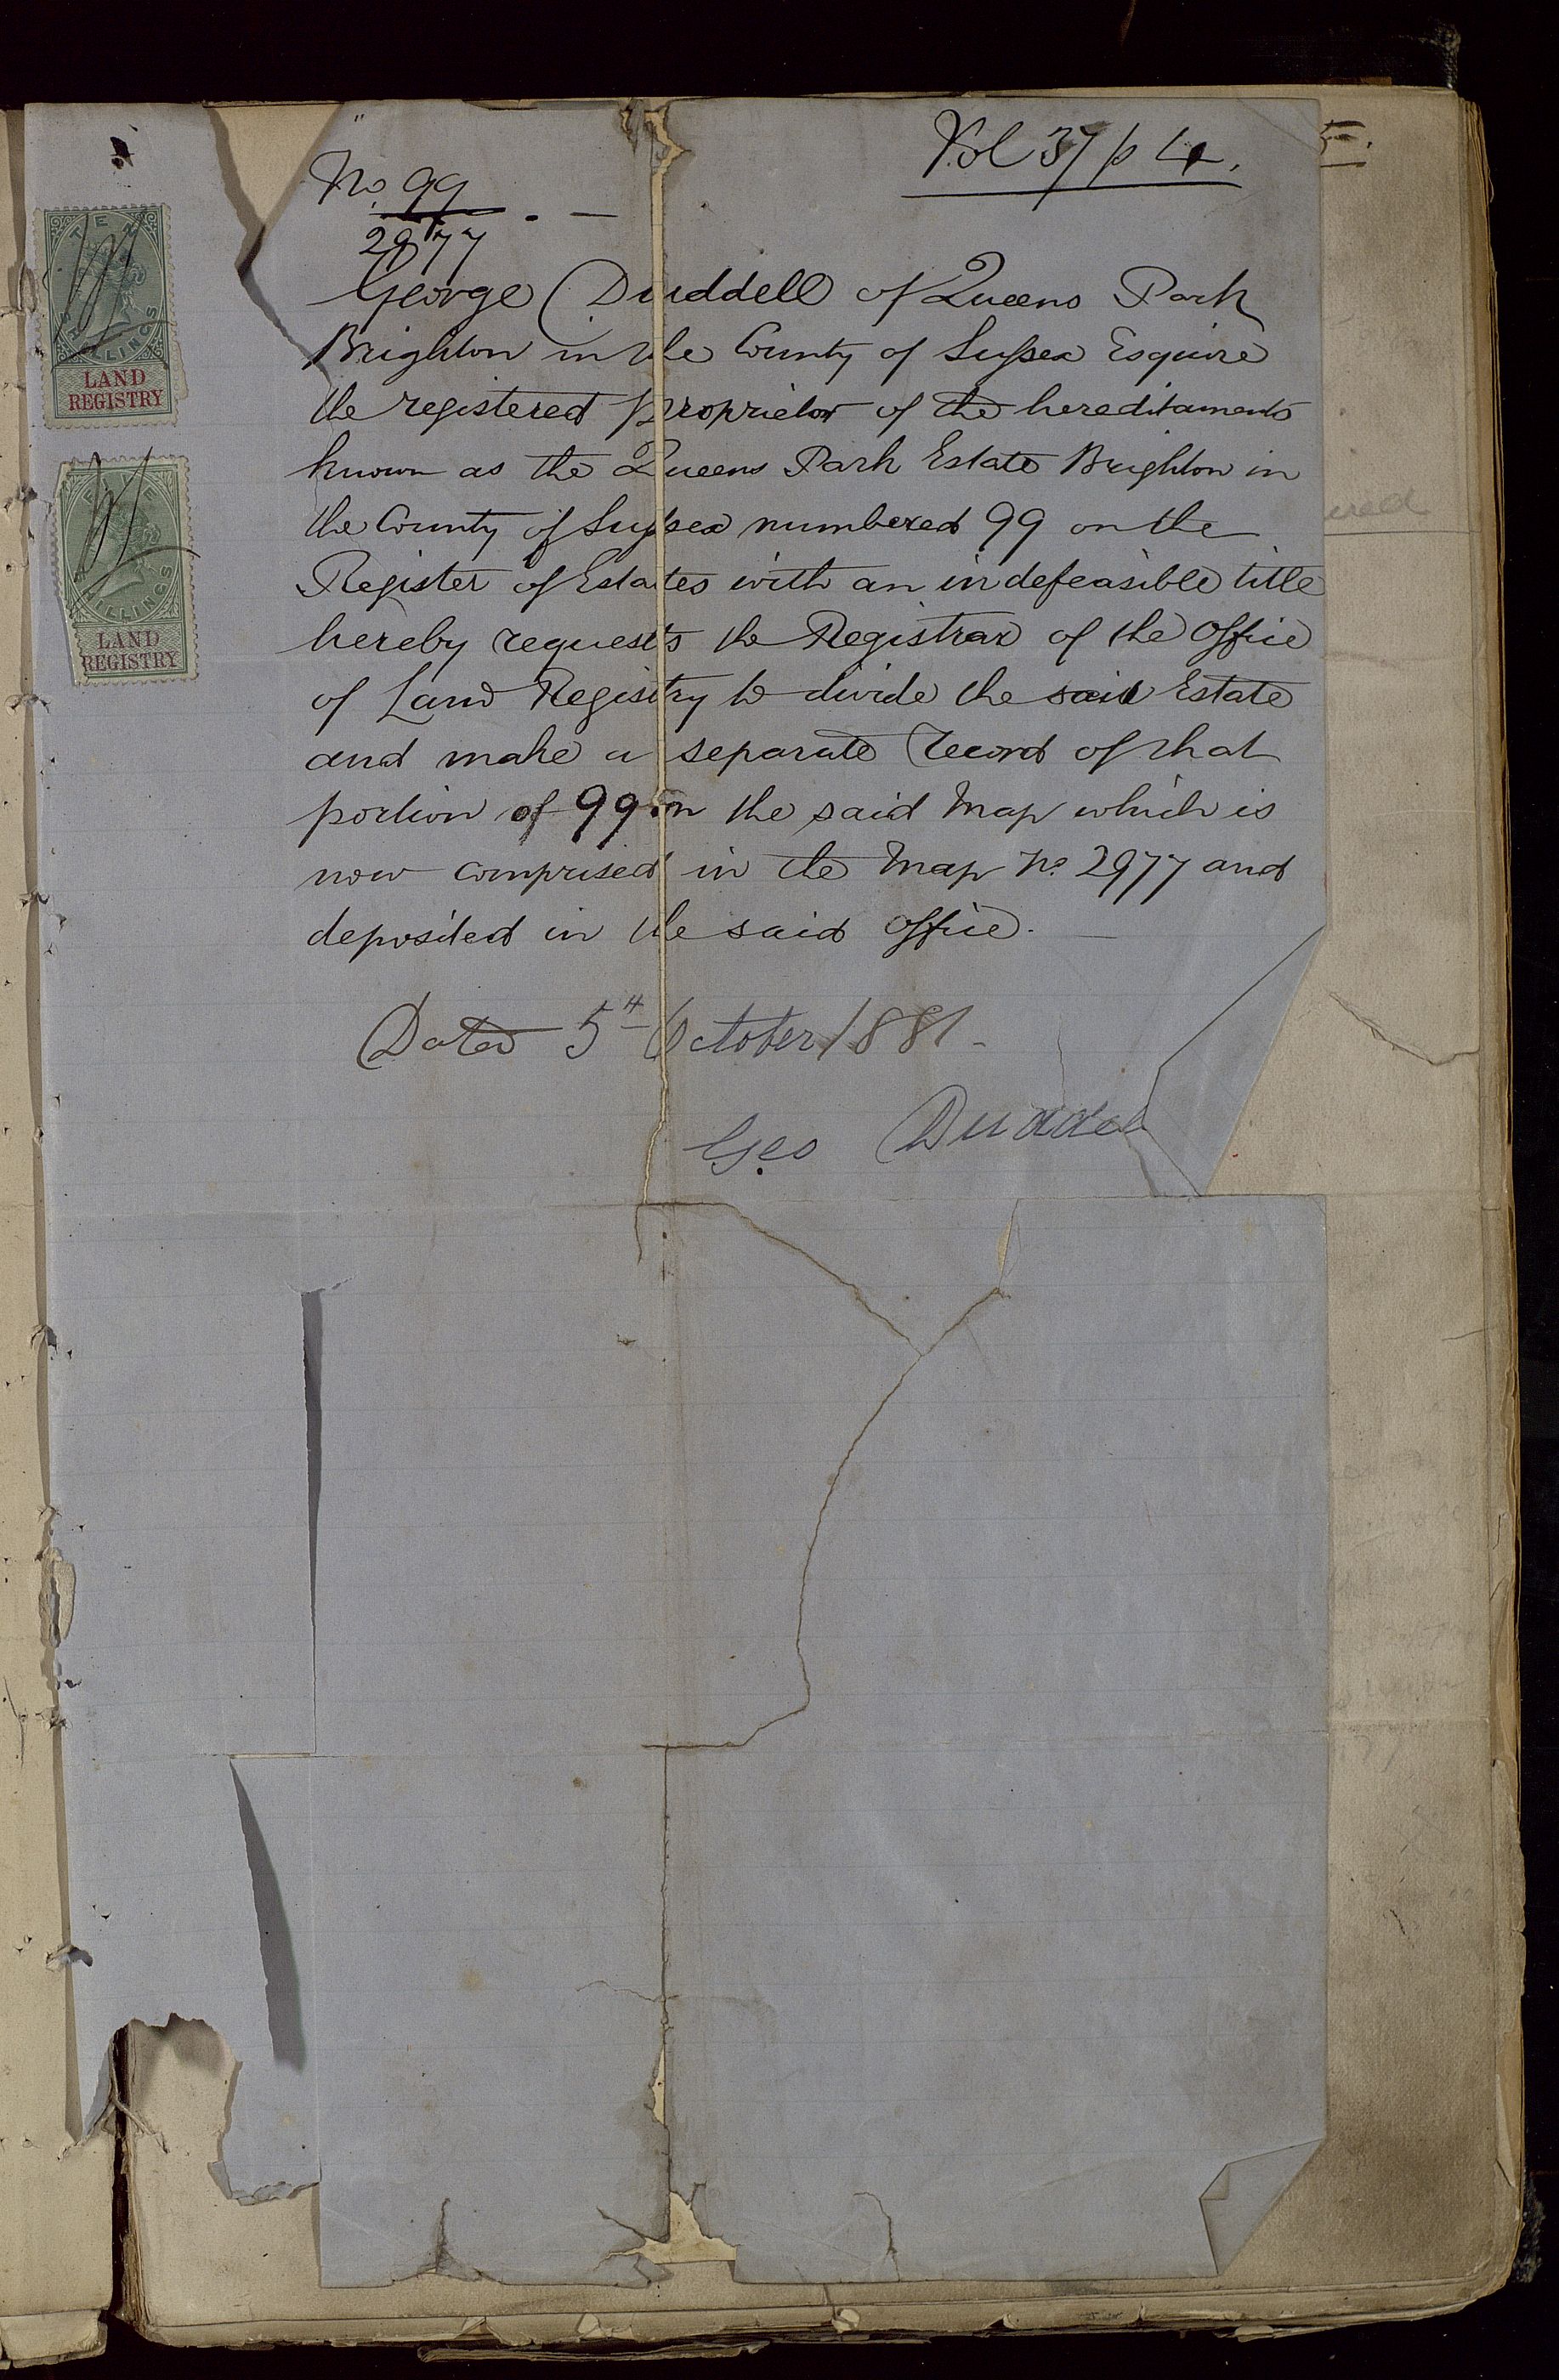 Vol 37 p 4.
No. 99
2977
George Duddell of Queens Park
Brighton in the County of Sussex Esquire
the registered proprietor of the hereditaments
known as the Queens Park Estate Brighton in
the County of Sussex numbered 99 on the
Register of Estates with an indefeasible title
hereby requests the Registrar of the Office
of Land Registry to divide the said Estate
and make a separate record of that
portion of 99 on the said Map which is
now comprised in the Map No. 2977 and
deposited in the said Office.
Dated 5th October 1881
Geo Duddell
TEN
SHILLINGS
LAND
REGISTRY
SHILLINGS
LAND
REGISTRY